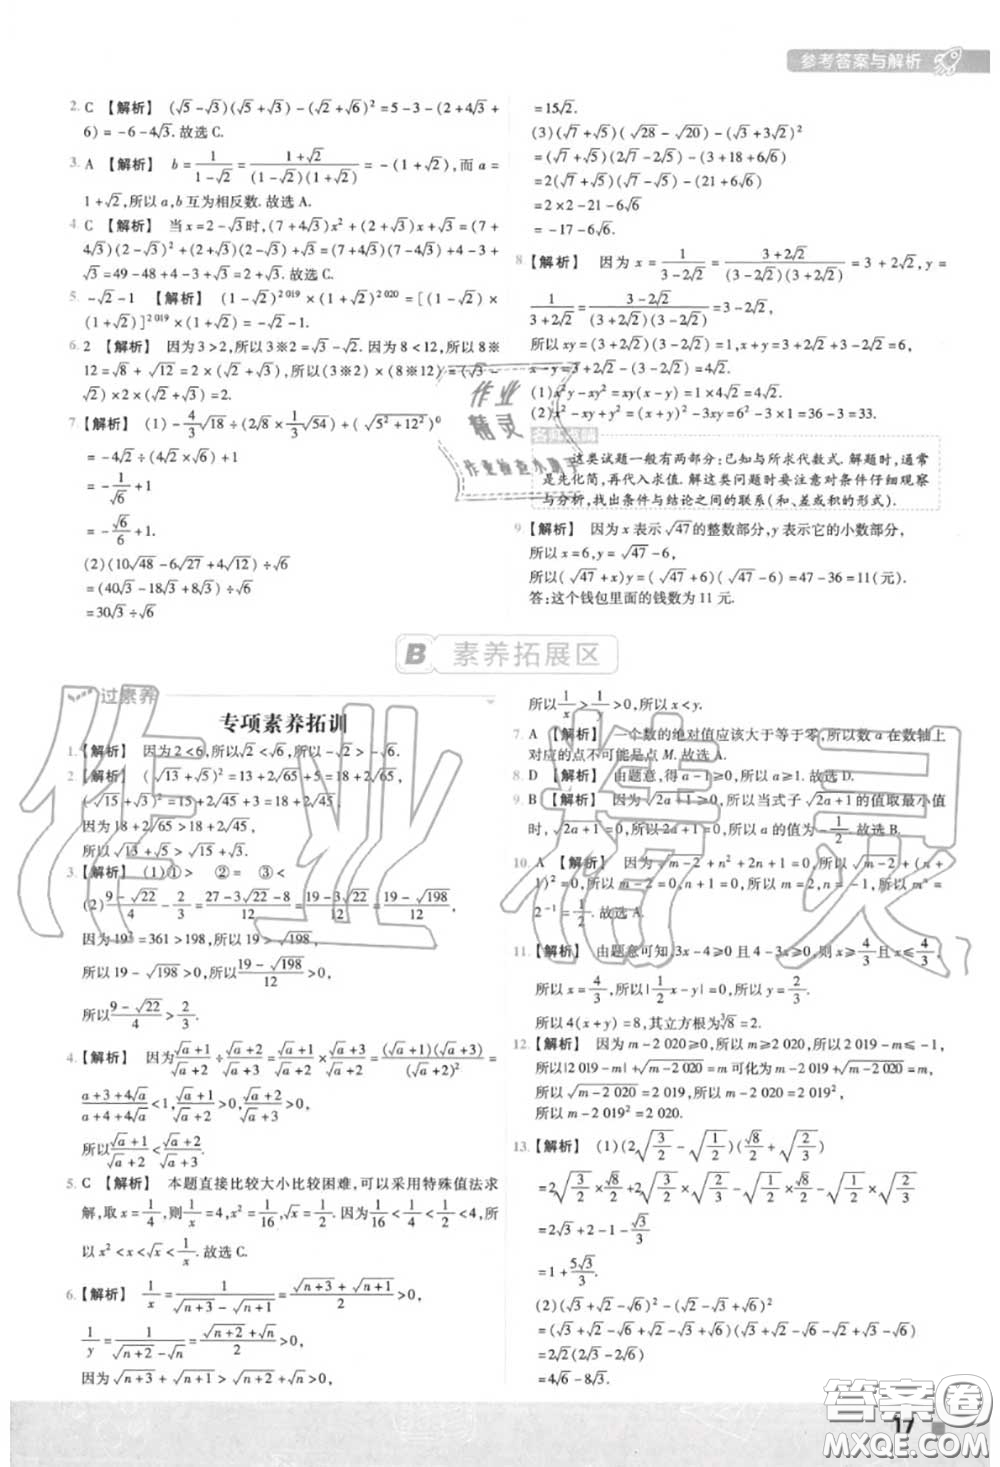 参考答案与解析
2. C 【解析】 (√5-√3)(√5+√3)-(√2+√6)²=5-3-(2+4√3+
6)=-6-4√3.故选 C.
3. A 【解析】 b=1/(1-√2)=(1+√2)/((1-√2)(1+√2))=-(1+√2),而 a=
1+√2,所以 a,b 互为相反数.故选 A.
4. C 【解析】 当 x=2-√3时,(7+4√3)x²+(2+√3)x+√3=(7+
4√3)(2-√3)²+(2+√3)(2-√3)+√3=(7+4√3)(7-4√3)+4-3+
√3=49-48+4-3+√3=2+√3.故选 C.
5. -√2-1 【解析】 (1-√2)²⁰¹⁹×(1+√2)²⁰²⁰=[(1-√2)×
(1+√2)]²⁰¹⁹×(1+√2)=-√2-1.
6. 2 【解析】 因为 3>2,所以 3※2=√3-√2.因为 8<12,所以 8※
12=√8+√12=2×(√2+√3),所以(3※2)×(8※12)=(√3-
√2)×2×(√2+√3)=2.
7. 【解析】 (1)-4/3√18÷(2√8×1/3√54)+(√(5²+12²))⁰
=-4√2÷(4√2×√6)+1
=-1/√6+1
=-√6/6+1.
(2)(10√48-6√27+4√12)÷√6
=(40√3-18√3+8√3)÷√6
=30√3÷√6
=15√2.
(3)(√7+√5)(√28-√20)-(√3+3√2)²
=(√7+√5)(2√7-2√5)-(3+18+6√6)
=2(√7+√5)(√7-√5)-(21+6√6)
=2×2-21-6√6
=-17-6√6.
8. 【解析】 因为 x=1/(3-2√2)=(3+2√2)/((3-2√2)(3+2√2))=3+2√2,y=
1/(3+2√2)=(3-2√2)/((3+2√2)(3-2√2))=3-2√2,
所以 xy=(3+2√2)(3-2√2)=1,x+y=3+2√2+3-2√2=6,
x-y=3+2√2-(3-2√2)=4√2.
(1)x²y-xy²=xy(x-y)=1×4√2=4√2.
(2)x²-xy+y²=(x+y)²-3xy=6²-3×1=36-3=33.
这类试题一般有两部分:已知与所求代数式.解题时,通常
是先化简,再代入求值.解这类问题时要注意对条件仔细观察
与分析,找出条件与结论之间的联系(和、差或积的形式).
9. 【解析】 因为 x 表示√47的整数部分,y 表示它的小数部分,
所以 x=6,y=√47-6,
所以(√47+x)y=(√47+6)(√47-6)=47-36=11(元).
答:这个钱包里面的钱数为 11 元.
B 素养拓展区
过素养
专项素养拓训
1. 【解析】 因为 2<6,所以√2<√6,所以-√2>-√6.
2. 【解析】 (√13+√5)²=13+2√65+5=18+2√65,
(√15+√3)²=15+2√45+3=18+2√45,
因为 18+2√65>18+2√45,
所以√13+√5>√15+√3.
3. 【解析】 (1)①> ②= ③<
(2)(9-√22)/4-2/3=(27-3√22-8)/12=(19-3√22)/12=(19-√198)/12,
因为 19²=361>198,所以 19>√198,
所以 19-√198>0,所以(19-√198)/12>0,
所以(9-√22)/4>2/3.
4. 【解析】 因为(√a+1)/(√a+2)÷(√a+2)/(√a+3)=(√a+1)/(√a+2)×(√a+3)/(√a+2)=((√a+1)(√a+3))/(√a+2)²=
(a+3+4√a)/(a+4+4√a)<1,(√a+1)/(√a+2)>0,(√a+2)/(√a+3)>0,
所以(√a+1)/(√a+2)<(√a+2)/(√a+3).
5. C 【解析】 本题直接比较大小比较困难,可以采用特殊值法求
解,取 x=1/4,则1/x=4,x²=1/16,√x=1/2.因为1/16<1/4<1/2<4,所
以 x²<x<√x<1/x.故选 C.
6. 【解析】 1/x=1/(√(n+3)-√(n+1))=(√(n+3)+√(n+1))/2>0,
1/y=1/(√(n+2)-√n)=(√(n+2)+√n)/2>0,
因为√(n+3)+√(n+1)>√(n+2)+√n>0,
所以1/x>1/y>0,所以 x<y.
7. A 【解析】 一个数的绝对值应该大于等于零,所以数 a 在数轴上
对应的点不可能是点 M.故选 A.
8. D 【解析】 由题意,得 a-1≥0,所以 a≥1.故选 D.
9. B 【解析】 因为√(2a+1)≥0,所以当式子√(2a+1)的值取最小值
时,√(2a+1)=0,所以 2a+1=0,所以 a 的值为-1/2.故选 B.
10. A 【解析】 因为√(m-2)+n²+2n+1=0,所以√(m-2)+(n+
1)²=0,所以 m-2=0,n+1=0,所以 m=2,n=-1,所以 mⁿ=
2⁻¹=1/2.故选 A.
11. 【解析】 由题意可知,3x-4≥0 且 4-3x≥0,则 x≥4/3且 x≤4/3,
所以 x=4/3,所以|1/2x-y|=0,所以 y=2/3.
所以 4(x+y)=8,其立方根为∛8=2.
12. 【解析】 因为 m-2 020≥0,所以 m≥2 020,所以 2 019-m≤-1,
所以|2 019-m|+√(m-2 020)=m 可化为 m-2 019+√(m-2 020)=m,
所以√(m-2 020)=2 019,所以 m-2 020=2 019²,
所以 m-2 019²=2 020.
13. 【解析】 (1)(2√(3/2)-√(1/2))(√8/2+√(2/3))
=2√(3/2)×√8/2+2√(3/2)×√(2/3)-√(1/2)×√8/2-√(1/2)×√(2/3)
=2√3+2-1-√3/3
=1+5√3/3.
(2)(√3+√2-√6)²-(√3-√2+√6)²
=(√3+√2-√6+√3-√2+√6)(√3+√2-√6-√3+√2-√6)
=2√3(2√2-2√6)
=4√6-8√3·√6/√3.
作业精灵
答案圈
MXQE.COM
17